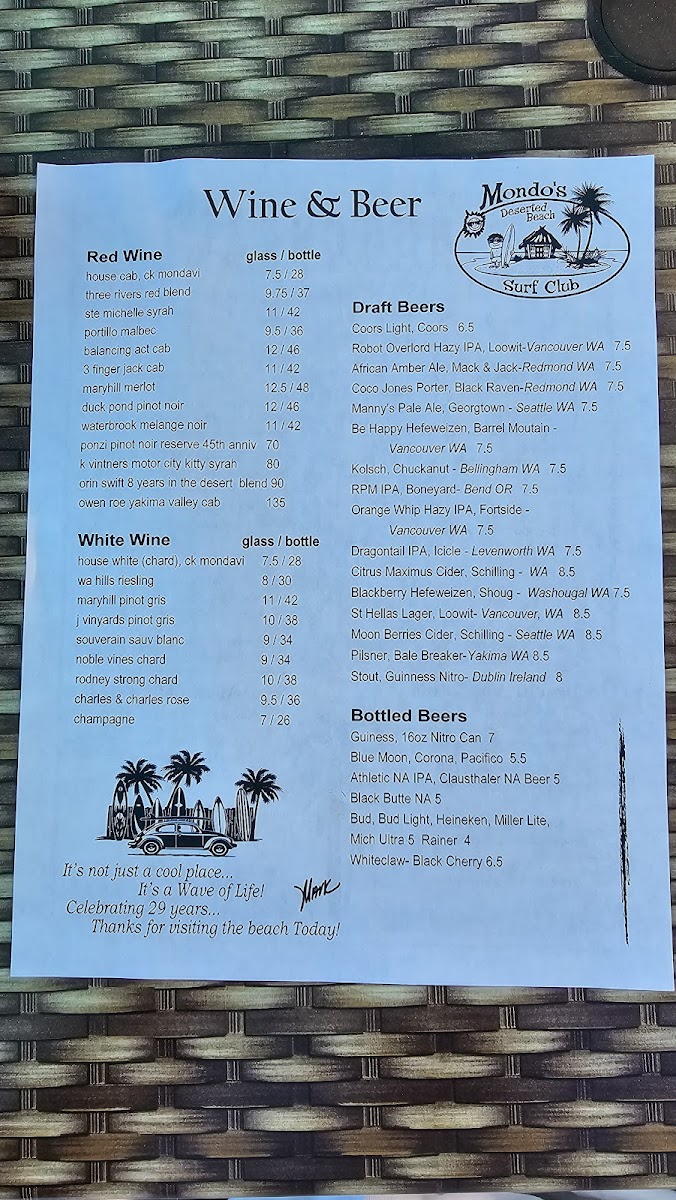 Wine & Beer
Mondo's
Deserted
Beach
Surf Club
Red Wine glass / bottle
house cab, ck mondavi 7.5 / 28
three rivers red blend 9.75 / 37
ste michelle syrah 11 / 42
portillo malbec 9.5 / 36
balancing act cab 12 / 46
3 finger jack cab 11 / 42
maryhill merlot 12.5 / 48
duck pond pinot noir 12 / 46
waterbrook melange noir 11 / 42
ponzi pinot noir reserve 45th anniv 70
k vintners motor city kitty syrah 80
orin swift 8 years in the desert blend 90
owen roe yakima valley cab 135
White Wine glass / bottle
house white (chard), ck mondavi 7.5 / 28
wa hills riesling 8 / 30
maryhill pinot gris 11 / 42
j vinyards pinot gris 10 / 38
souverain sauv blanc 9 / 34
noble vines chard 9 / 34
rodney strong chard 10 / 38
charles & charles rose 9.5 / 36
champagne 7 / 26
It's not just a cool place...
It's a Wave of Life!
Celebrating 29 years...
Thanks for visiting the beach Today!
Mark
Draft Beers
Coors Light, Coors 6.5
Robot Overlord Hazy IPA, Loowit-Vancouver WA 7.5
African Amber Ale, Mack & Jack-Redmond WA 7.5
Coco Jones Porter, Black Raven-Redmond WA 7.5
Manny's Pale Ale, Georgtown - Seattle WA 7.5
Be Happy Hefeweizen, Barrel Moutain -
Vancouver WA 7.5
Kolsch, Chuckanut - Bellingham WA 7.5
RPM IPA, Boneyard- Bend OR 7.5
Orange Whip Hazy IPA, Fortside -
Vancouver WA 7.5
Dragontail IPA, Icicle - Levenworth WA 7.5
Citrus Maximus Cider, Schilling - WA 8.5
Blackberry Hefeweizen, Shoug - Washougal WA 7.5
St Hellas Lager, Loowit- Vancouver, WA 8.5
Moon Berries Cider, Schilling - Seattle WA 8.5
Pilsner, Bale Breaker-Yakima WA 8.5
Stout, Guinness Nitro- Dublin Ireland 8
Bottled Beers
Guiness, 16oz Nitro Can 7
Blue Moon, Corona, Pacifico 5.5
Athletic NA IPA, Clausthaler NA Beer 5
Black Butte NA 5
Bud, Bud Light, Heineken, Miller Lite,
Mich Ultra 5 Rainer 4
Whiteclaw- Black Cherry 6.5